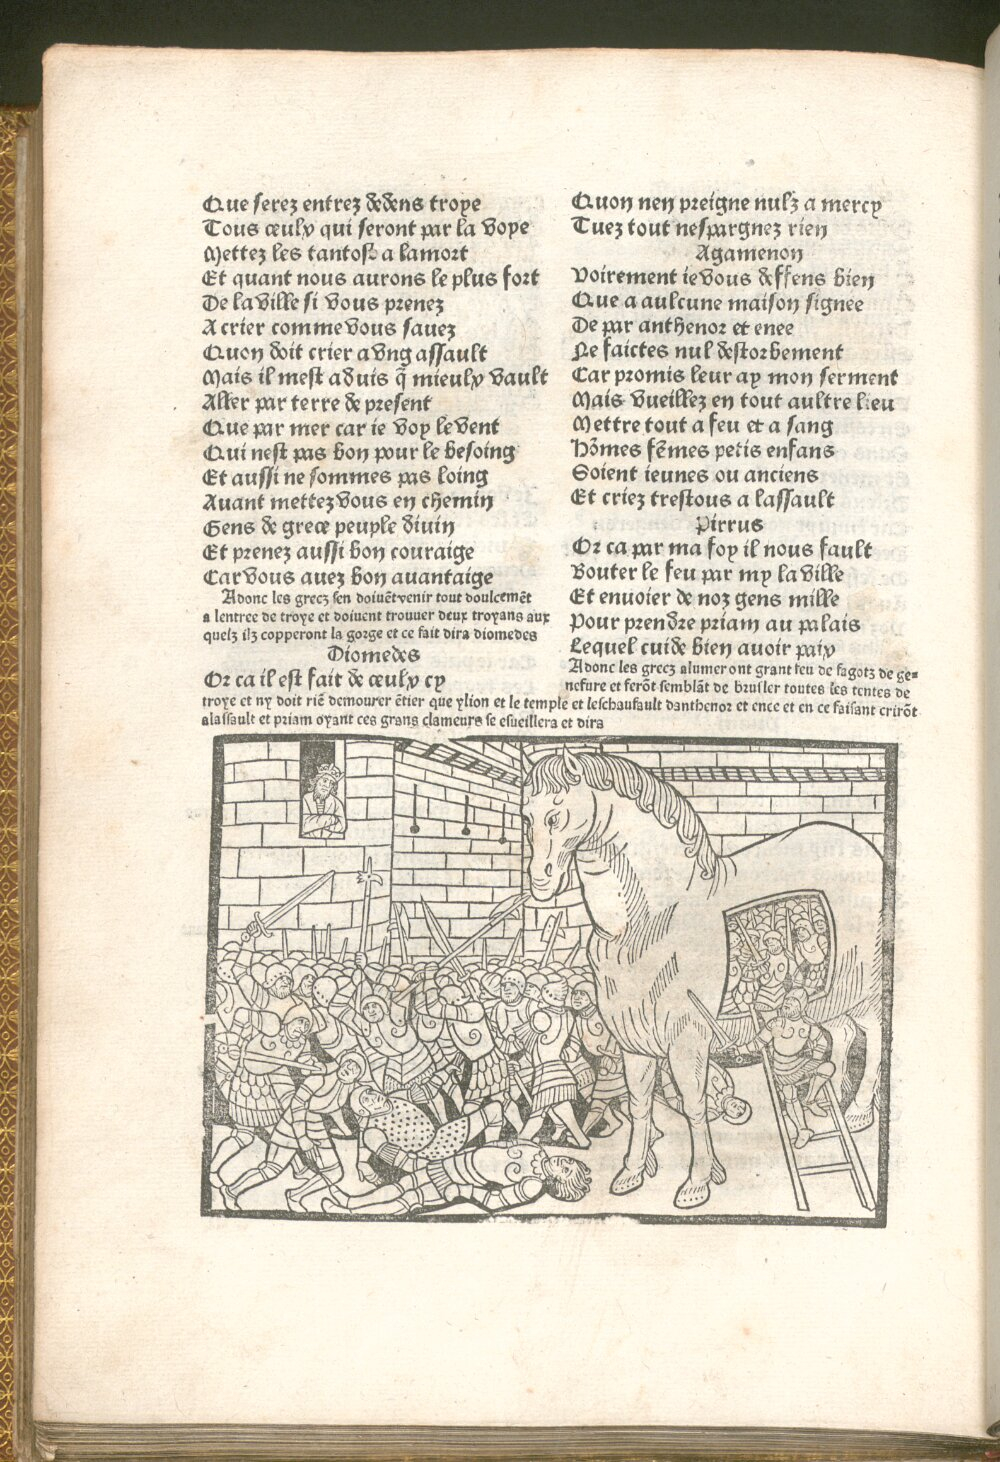 Que serez entrez dedens troye
Tous ceulx qui seront par la voye
Mettez les tantost a lamort
Et quant nous aurons le plus fort
De la ville si vous prenez
A crier comme vous sauez
Quon doit crier a vng assault
Mais il mest aduis q̃ mieulx vault
Aller par terre de present
Que par mer car ie voy le vent
Qui nest pas bon pour le besoing
Et aussi ne sommes pas loing
Auant mettez vous en chemin
Gens de grece peuple diuin
Et prenez aussi bon couraige
Car vous auez bon auantaige
Adonc les grecz sen doiuẽt venir tout doulcemẽt
a lentree de troye et doiuent trouuer deux troyans aux
quelz ilz copperont la gorge et ce fait dira diomedes
Diomedes
Or ca il est fait de ceulx cy
Quon nen preigne nulz a mercy
Tuez tout nespargnez rien
Agamenon
Voirement ie vous deffens bien
Que a aulcune maison signee
De par anthenor et enee
Ne faictes nul destorbement
Car promis leur ay mon serment
Mais vueillez en tout aultre lieu
Mettre tout a feu et a sang
Hõmes fẽmes petis enfans
Soient ieunes ou anciens
Et criez trestous a lassault
Pirrus
Or ca par ma foy il nous fault
Bouter le feu par my la ville
Et enuoier de noz gens mille
Pour prendre priam au palais
Lequel cuide bien auoir paix
Adonc les grecz alumeront grant feu de fagotz de ge-
nefure et ferõt semblãt de brusler toutes les tentes de
troye et ny doit riẽ demourer ẽtier que ylion et le temple et leschaufault danthenor et enee et en ce faisant crirõt
alassault et priam oyant ces grans clameurs se esueillera et dira